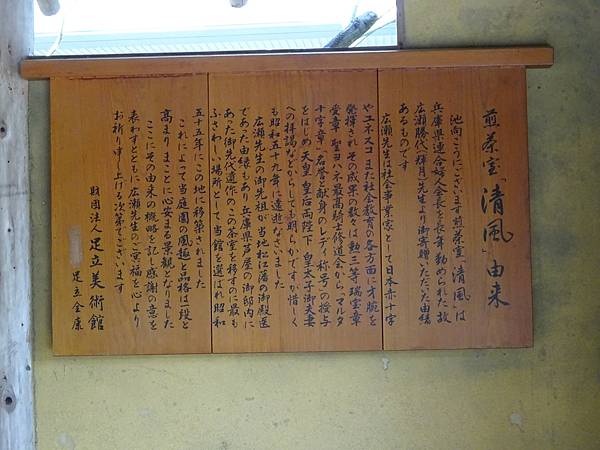 煎茶室「清風」由来
池向こうにございます煎茶室「清風」は
兵庫県連合婦人会長を長年勤められた故
広瀬勝代(輝月)先生より御寄贈いただいた由緒
あるものです
広瀬先生は社会事業家として日本赤十字
やユネスコまた社会教育の各方面に才腕を
発揮されその成果の数々は勲三等瑞宝章
愛章聖ヨハネ最高騎士修道会から「マルタ
十字章」「名誉と献身のレディ称号」の授与
をはじめ天皇皇后両陛下皇太子御夫妻
への拝謁などからしても明らかですが惜しく
も昭和五十九年に逝去なさいました
広瀬先生の御先祖が当地松江藩の御殿医
であった由縁もあり兵庫県芦屋の御邸内に
あった御先代遺作のこの茶室を移すのに最も
ふさわしい場所として当館を選ばれ昭和
五十五年にこの地に移築されました
これによって当庭園の風趣と品格は段と
高まりまことに心安まる景観となりました
ここにその由来の概略を記し感謝の意を
表わすとともに広瀬先生のご冥福を心より
お祈り申し上げる次第でございます
財団法人足立美術館
足立全康